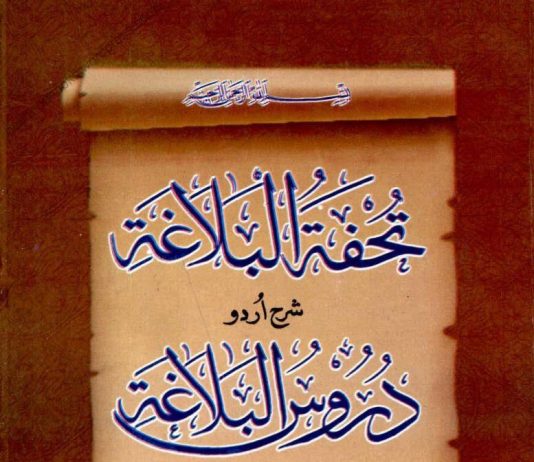 بسم الله الرحمن الرحيم
تُحْفَةُ الْبَلَاغَةِ
شرح اُردو
دُرُوْسُ الْبَلَاغَةِ